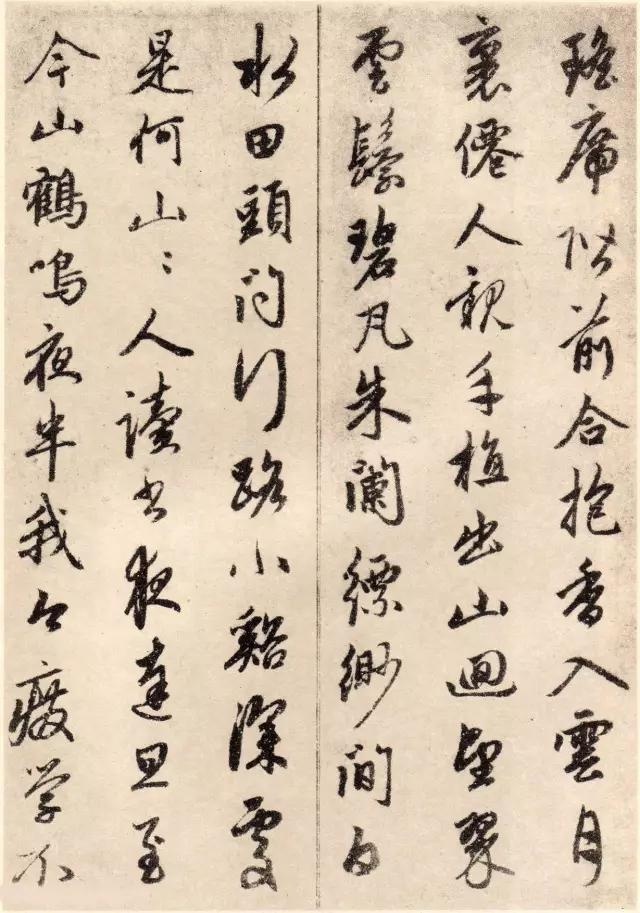 瑤席階前合抱香入雲月
裏僊人親手植出山迴望翠
雲鬟碧瓦朱闌縹緲間白
水田頭問行路小谿深處
是何山〻人讀書夜達旦至
今山鶴鳴夜半我今癈學不